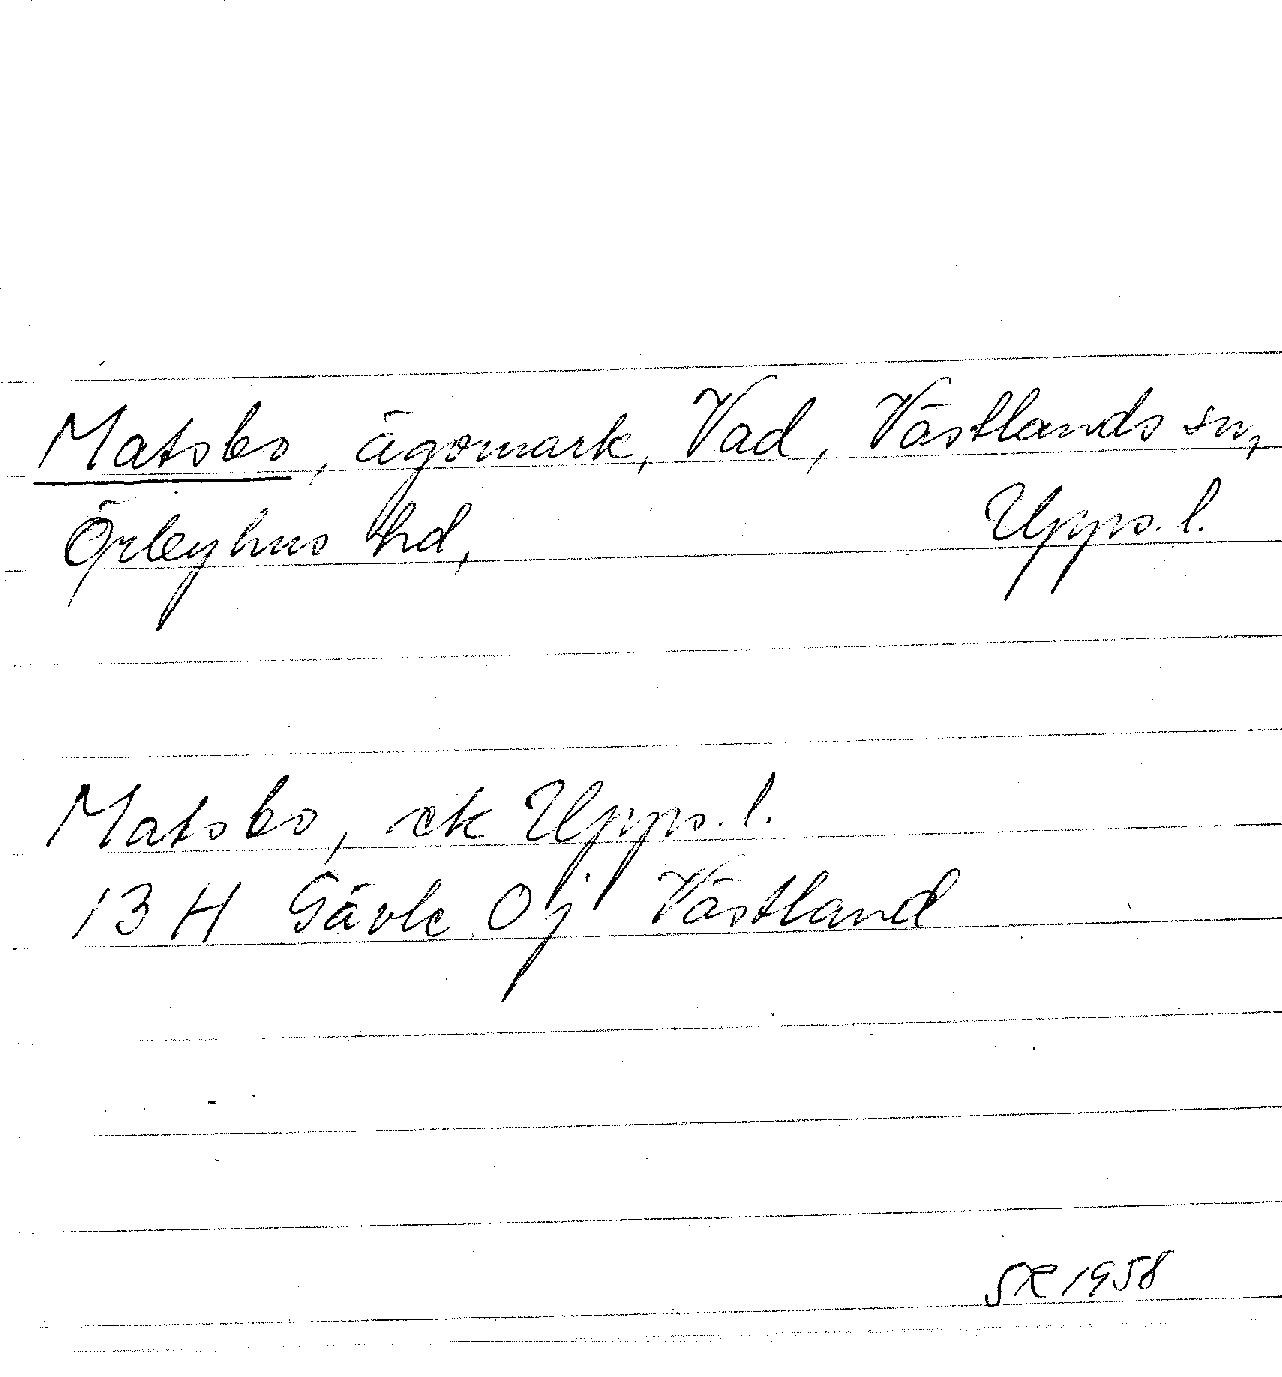 Matsbo, ägomark, Vad, Västlands sn,
Örbyhus hd, Upps. l.
Matsbo, ek Upps. l.
13 H Gävle 0j Västland
SR 1958